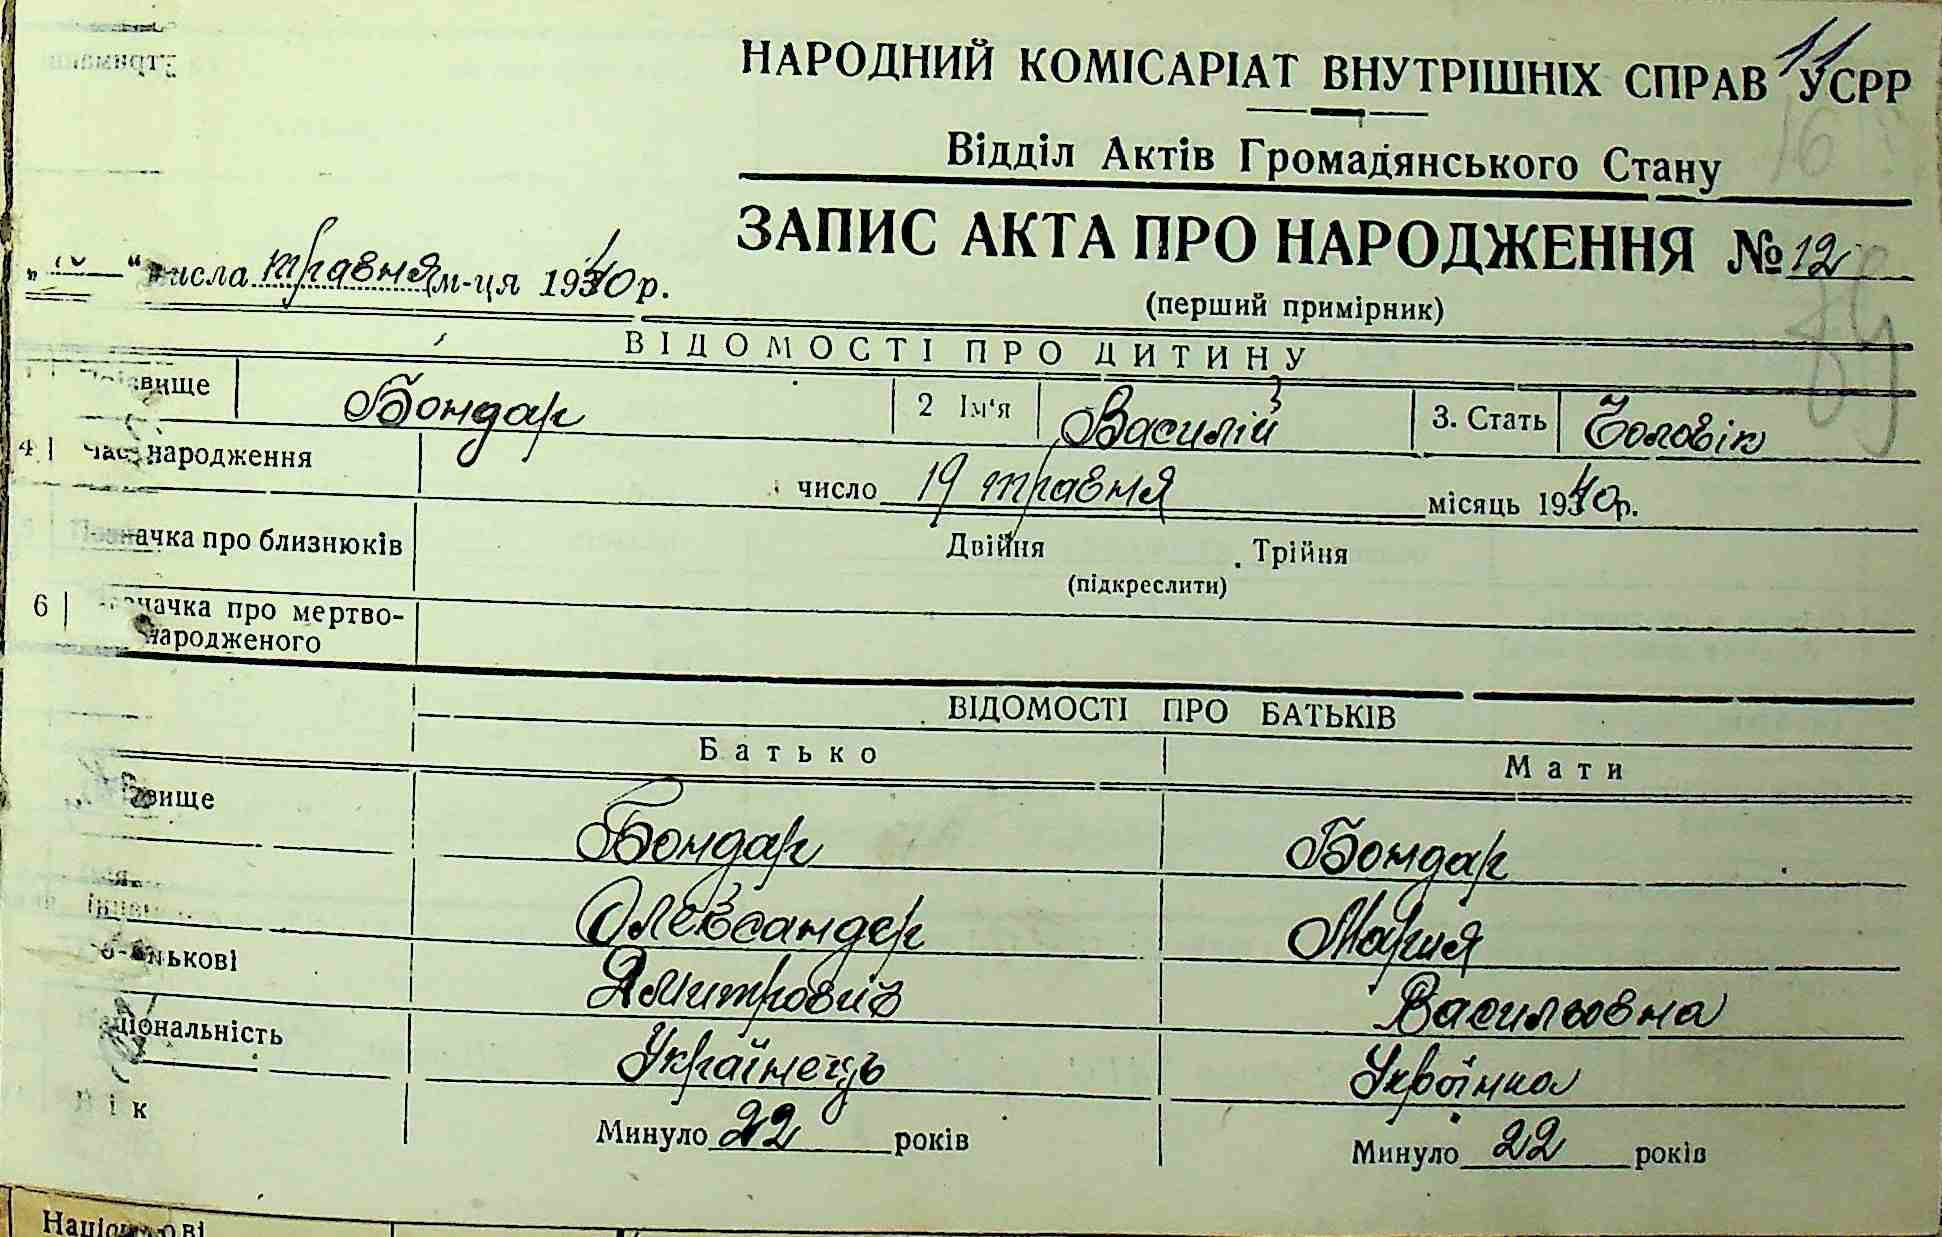 11
НАРОДНИЙ КОМІСАРІАТ ВНУТРІШНІХ СПРАВ УСРР
16
Відділ Актів Громадянського Стану
ЗАПИС АКТА ПРО НАРОДЖЕННЯ № 12
(перший примірник)
числа травня м-ця 1940 р.
ВІДОМОСТІ ПРО ДИТИНУ
Бондар 2 Ім'я Василій 3. Стать Чоловік
4 Час народження число 19 травня місяць 1940 р.
5 Позначка про близнюків Двійня Трійня
(підкреслити)
6 Позначка про мертво-
народженого
ВІДОМОСТІ ПРО БАТЬКІВ
Батько Мати
Бондар Бондар
Олександер Мария
по-батькові Дмитрович Васильовна
Національність Українець Українка
Вік Минуло 22 років Минуло 22 років